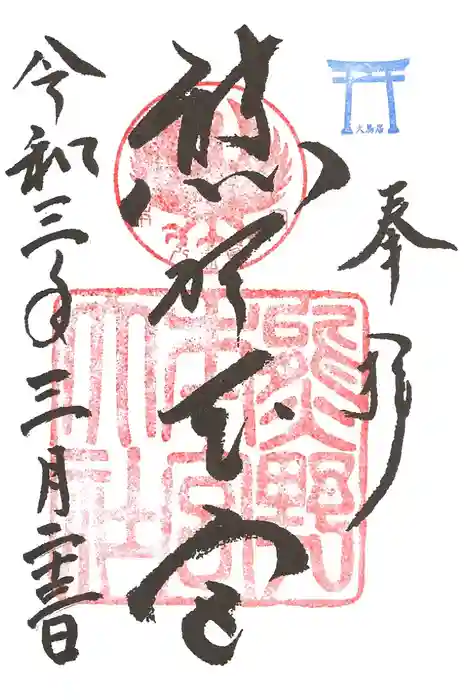 大鳥居
奉拝
熊野本宮
令和三年三月二十三日
熊野
本宮
大社